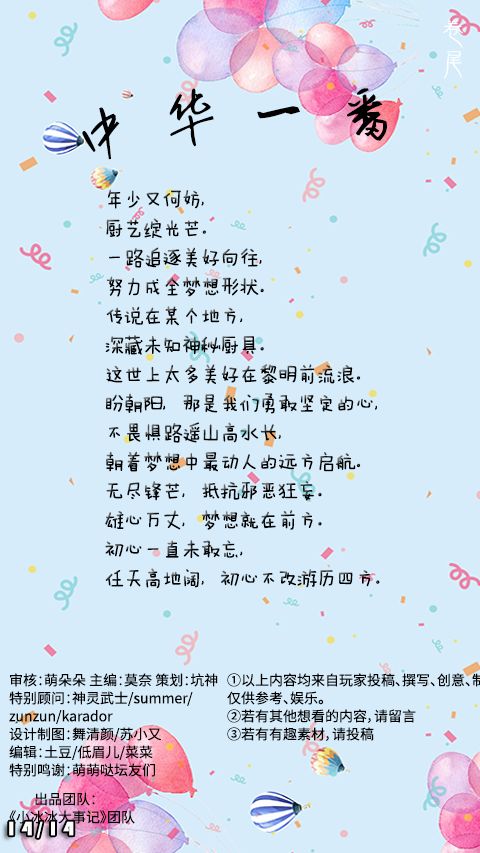 卷尾
中华一番
年少又何妨，
厨艺绽光芒。
一路追逐美好向往，
努力成全梦想形状。
传说在某个地方，
深藏未知神秘厨具。
这世上太多美好在黎明前流浪。
盼朝阳，那是我们勇敢坚定的心，
不畏惧路遥山高水长，
朝着梦想中最动人的远方启航。
无尽锋芒，抵抗邪恶狂妄。
雄心万丈，梦想就在前方。
初心一直未敢忘，
任天高地阔，初心不改游历四方。
审核：萌朵朵 主编：莫奈 策划：坑神
特别顾问：神灵武士/summer/
zunzun/karador
设计制图：舞清颜/苏小又
编辑：土豆/低眉儿/菜菜
特别鸣谢：萌萌哒坛友们
出品团队：
《小冰冰大事记》团队
①以上内容均来自玩家投稿、撰写、创意、制
仅供参考、娱乐。
②若有其他想看的内容，请留言
③若有有趣素材，请投稿
14/14